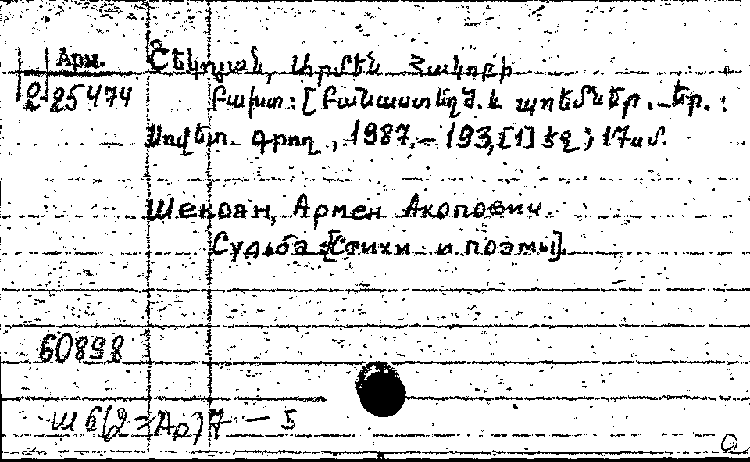 Арм.
Շեկոյան, Արմեն Հակոբի
2 25474
Բախտ: [Բանաստեղծ. և պոեմներ. - Եր.:
Սովետ. գրող, 1987. - 193, [1] էջ; 17սմ.
Шекоян, Армен Акопович.
Судьба: [Стихи и поэмы].
60898
Ш 6(2=Ар)7 — 5